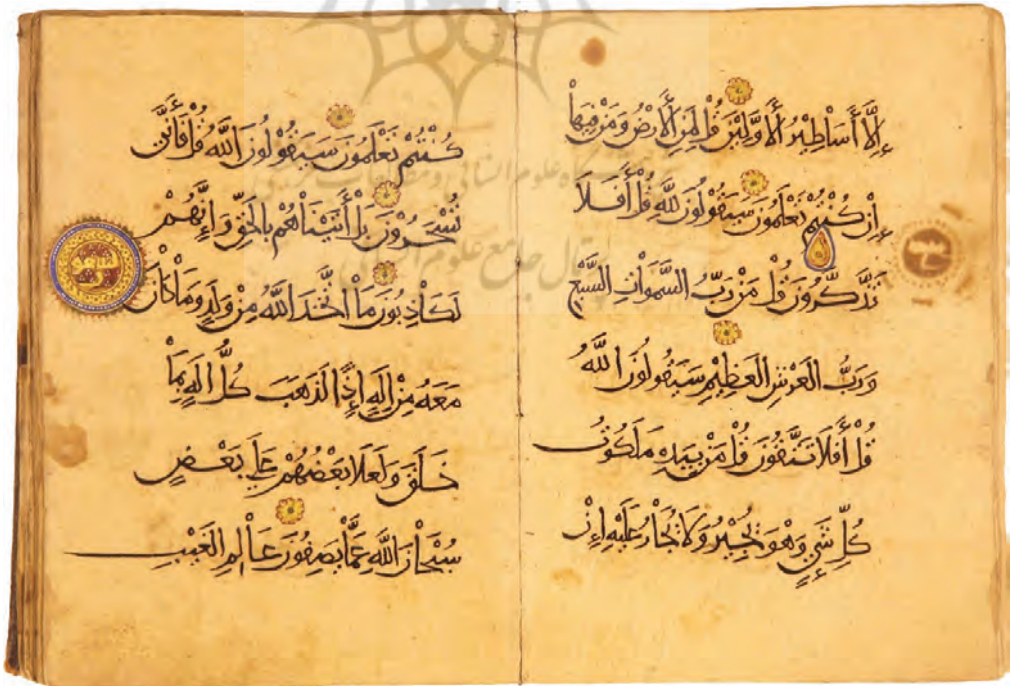 إِلَّا أَسَاطِيرُ الْأَوَّلِينَ قُلْ لِمَنِ الْأَرْضُ وَمَنْ فِيهَا
إِنْ كُنْتُمْ تَعْلَمُونَ سَيَقُولُونَ لِلَّهِ قُلْ أَفَلَا
تَذَّكَّرُونَ قُلْ مَنْ رَبُّ السَّمَوَاتِ السَّبْعِ
وَرَبُّ الْعَرْشِ الْعَظِيمِ سَيَقُولُونَ اللَّهُ
قُلْ أَفَلَا تَتَّقُونَ قُلْ مَنْ بِيَدِهِ مَلَكُوتُ
كُلِّ شَيْءٍ وَهْوَ يُجِيرُ وَلَا يُجَارُ عَلَيْهِ إِنْ
كُنْتُمْ تَعْلَمُونَ سَيَقُولُونَ اللَّهُ قُلْ فَأَنَّى
تُسْحَرُونَ بَلْ أَتَيْنَاهُمْ بِالْحَقِّ وَإِنَّهُمْ
لَكَاذِبُونَ مَا اتَّخَذَ اللَّهُ مِنْ وَلَدٍ وَمَا كَانَ
مَعَهُ مِنْ إِلَهٍ إِذًا لَذَهَبَ كُلُّ إِلَهٍ بِمَا
خَلَقَ وَلَعَلَا بَعْضُهُمْ عَلَى بَعْضٍ
سُبْحَانَ اللَّهِ عَمَّا يَصِفُونَ عَالِمِ الْغَيْبِ
علوم انسانی و مطالعات فرهنگی
پرتال جامع علوم انسانی